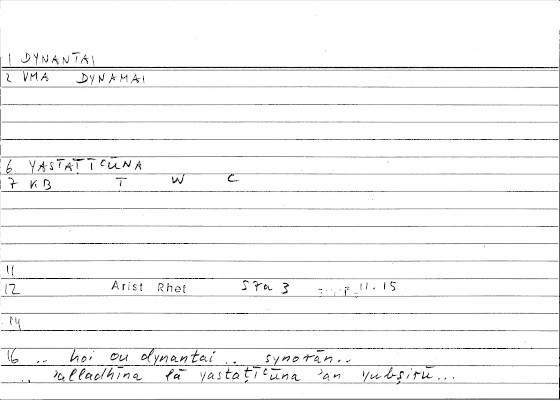 1 DYNANTAI
2 VMA DYNAMAI
6 YASTAṬĪʿŪNA
7 KB T W C
11
12 Arist Rhet 57a 3 11.15
14
16 .. hoi ou dynantai .. synorān..
.. ʾalladhīna lā yastaṭīʿūna ʾan yubṣirū...